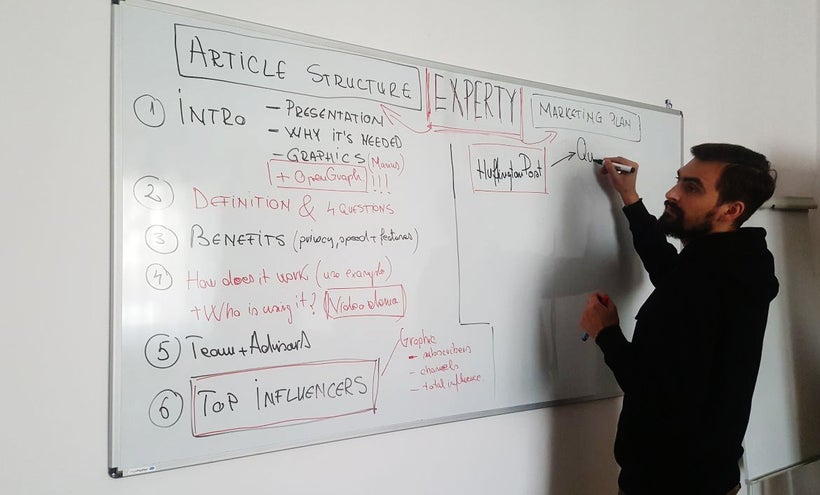 ARTICLE STRUCTURE
EXPERTY
MARKETING PLAN
1 INTRO
- PRESENTATION
- WHY IT'S NEEDED
- GRAPHICS (Marcus)
+ OpenGraph !!!
2 DEFINITION & 4 QUESTIONS
3 BENEFITS (privacy, speed + features)
4 How does it work (use example)
+ Who is using it?
5 Team + Advisors
6 TOP INFLUENCERS
Graphic
- subscribers
- channels
- total influence
HuffingtonPost
Qu